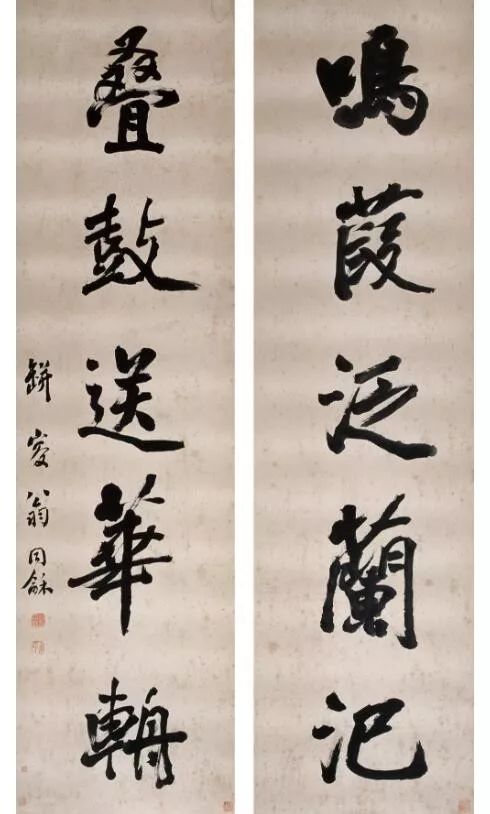 鳴葭泛蘭汜
疊鼓送華輈
缾叜翁同龢